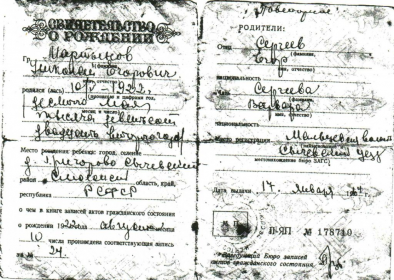 СВИДЕТЕЛЬСТВО
О РОЖДЕНИИ
Гр. Мартынов
(фамилия,
Николай Егорович
имя, отчество)
родился (лась) 10/V 1922 г.
(прописью и цифрами год,
десятого мая
месяц и число)
тысяча девятьсот
двадцать второго года
Место рождения ребенка: город, селение
д. Григорово Сычевский
район Смоленск область, край,
республика РСФСР
о чем в книге записей актов гражданского состояния
о рождении 1922 года августа
10 числа произведена соответствующая запись
за № 24
Повторное
РОДИТЕЛИ:
Отец Сергеев
(фамилия,
Егор
имя, отчество)
национальность
Мать Сергеева
(фамилия,
Варвара
имя, отчество)
национальность
Место регистрации
Сычевский уезд
местонахождение бюро ЗАГС)
Дата выдачи 17 января
II-ЯП № 178710
Заведующий Бюро записей
актов гражданского состояния